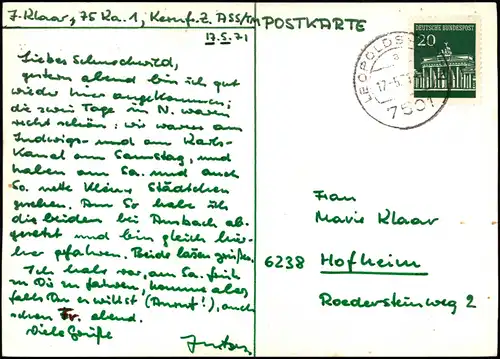 J. Klaar, 75 Ka. 1, Kernf. Z. ASS/TM
POSTKARTE
17.5.71
DEUTSCHE BUNDESPOST
20
LEOPOLDS
a
17.-5.71
7501
Liebes
gestern abend bin ich gut
wieder hier angekommen;
die zwei Tage in N. waren
recht schön: wir waren am
Ludwigs- und am Karls-
Kanal am Samstag, und
haben am Sa. und auch
So. nette kleine Städtchen
gesehen. Am So habe ich
die beiden bei Ansbach ab-
gesetzt und bin gleich hier-
her gefahren. Beide lassen grüßen.
Ich habe vor, am Sa. früh
zu Dir zu fahren, komme aber,
falls Du es willst (Antwort!), auch
schon Fr. abend.
Viele Grüße
Frau
Marie Klaar
6238 Hofheim
Roedersteinweg 2